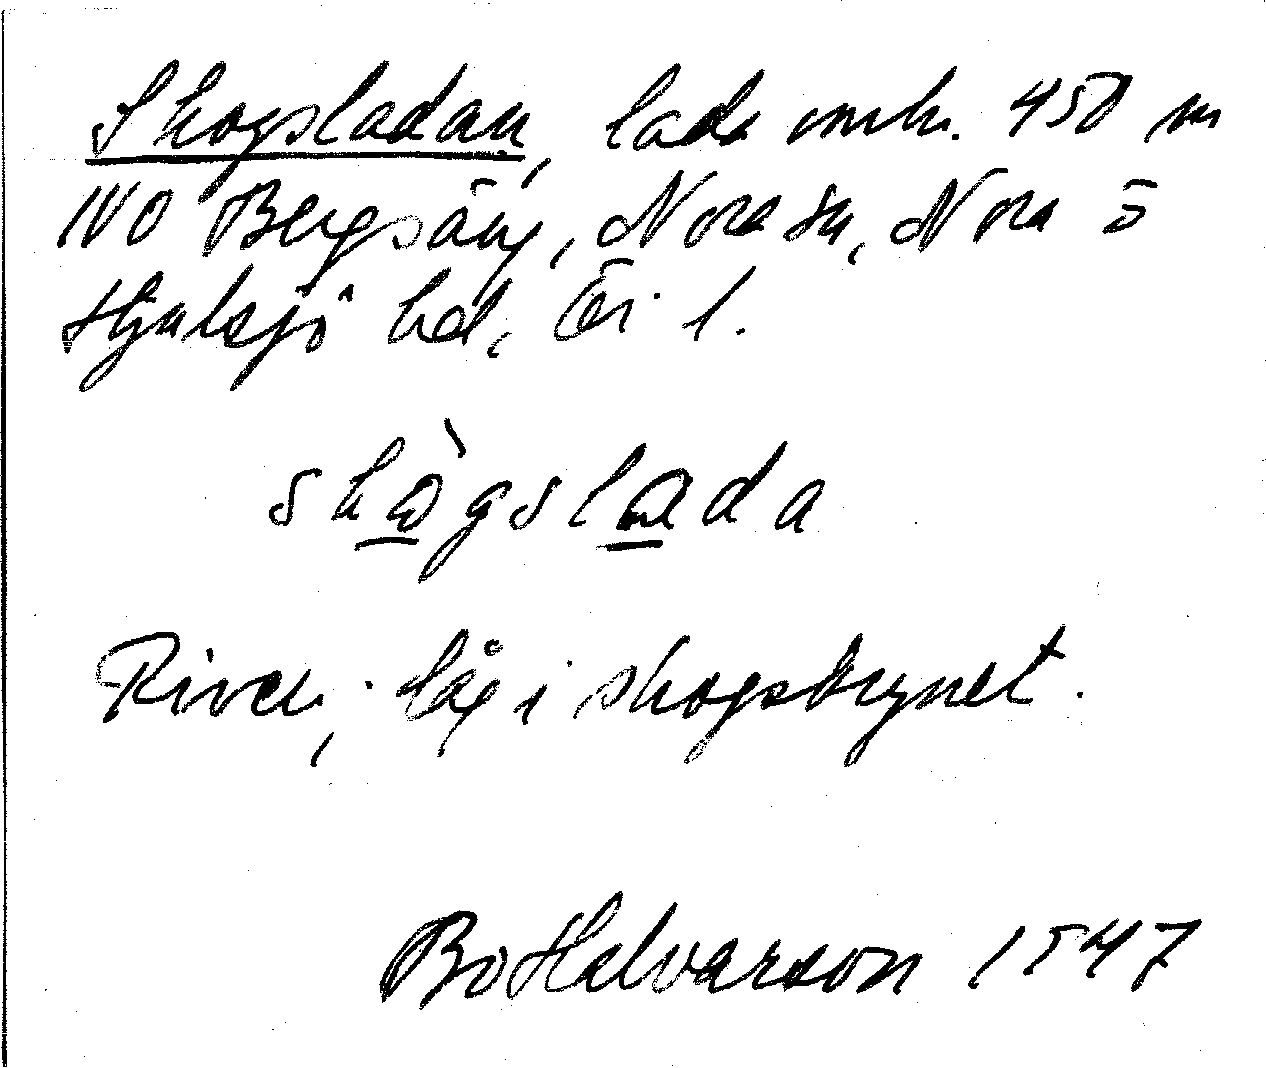 Skogsladan, lada omkr. 450 m
NO Bergsäng, Nora sn, Nora o
Hjulsjö hd, Ör. l.
skògslada
Riven; låg i skogsbrynet.
Bo Halvarson 1947